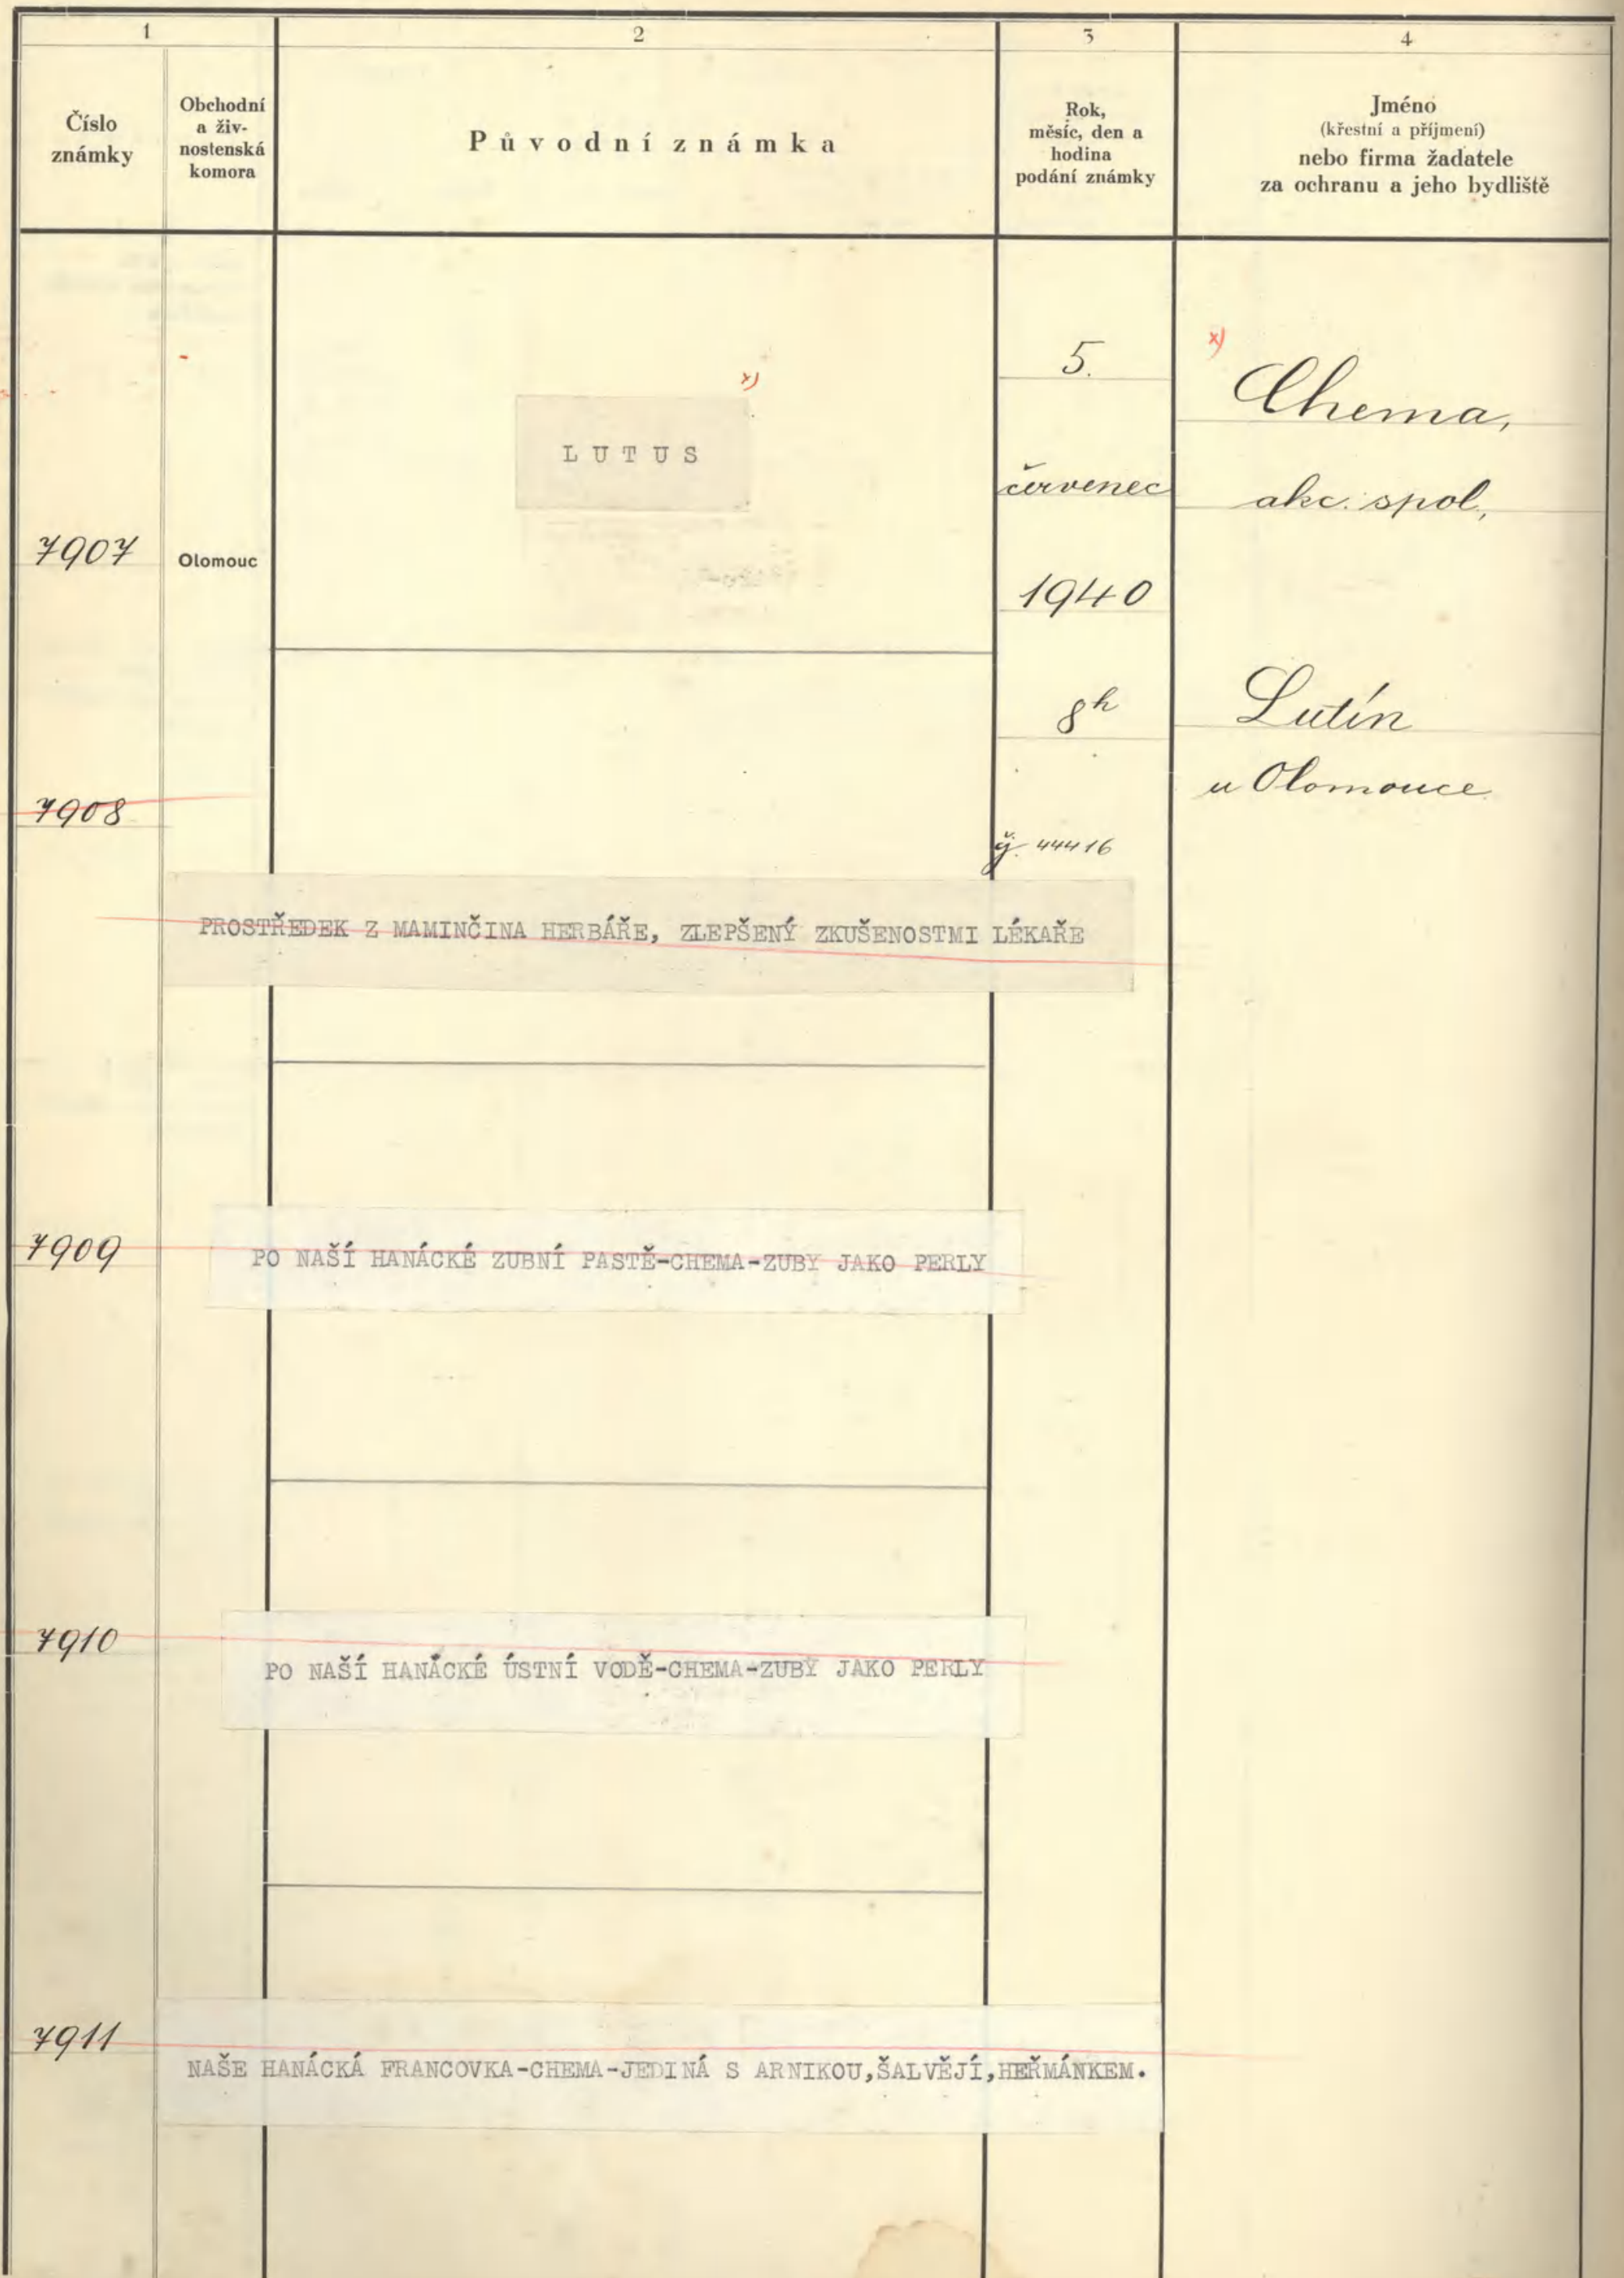 1
2
3
4
Číslo
známky
Obchodní
a živ-
nostenská
komora
Původní známka
Rok,
měsíc, den a
hodina
podání známky
Jméno
(křestní a příjmení)
nebo firma žadatele
za ochranu a jeho bydliště
7907
Olomouc
x)
LUTUS
5.
červenec
1940
8h
čj. 44416
x)
Chema,
akc. spol.,
Lutín
u Olomouce
7908
PROSTŘEDEK Z MAMINČINA HERBÁŘE, ZLEPŠENÝ ZKUŠENOSTMI LÉKAŘE
7909
PO NAŠÍ HANÁCKÉ ZUBNÍ PASTĚ-CHEMA-ZUBY JAKO PERLY
7910
PO NAŠÍ HANÁCKÉ ÚSTNÍ VODĚ-CHEMA-ZUBY JAKO PERLY
7911
NAŠE HANÁCKÁ FRANCOVKA-CHEMA-JEDINÁ S ARNIKOU,ŠALVĚJÍ,HEŘMÁNKEM.